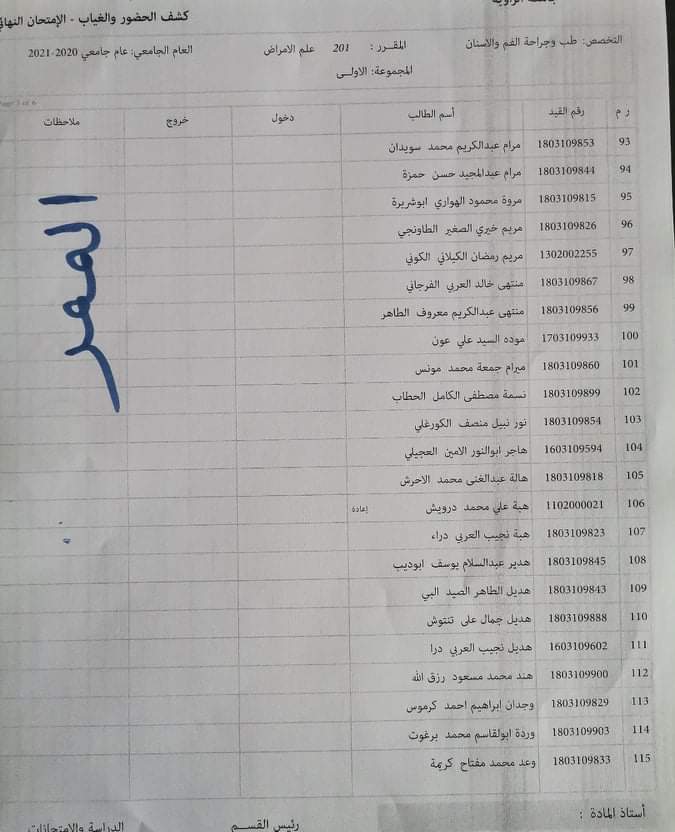 كشف الحضور والغياب - الإمتحان النهائي
التخصص: طب وجراحة الفم والاسنان المقـرر : 201 علم الامراض العام الجامعي: عام جامعي 2020-2021
المجموعة: الاولـى
ر م رقم القيد أسم الطالب دخول خروج ملاحظات
93 1803109853 مرام عبدالكريم محمد سويدان
94 1803109844 مرام عبدالمجيد حسن حمزة
95 1803109815 مروة محمود الهواري ابوشريرة
96 1803109826 مريم خيري الصغير الطاونجي
97 1302002255 مريم رمضان الكيلاني الكوني
98 1803109867 منتهى خالد العربي الفرجاني
99 1803109856 منتهى عبدالكريم معروف الطاهر
100 1703109933 موده السيد علي عون
101 1803109860 ميرام جمعة محمد مونس
102 1803109899 نسمة مصطفى الكامل الحطاب
103 1803109854 نور نبيل منصف الكورغلي
104 1603109594 هاجر ابوالنور الامين العجيلي
105 1803109818 هالة عبدالغنى محمد الاحرش
106 1102000021 هبة علي محمد درويش إعادة
107 1803109823 هبة نجيب العربي دراء
108 1803109845 هدير عبدالسلام يوسف ابوديب
109 1803109843 هديل الطاهر الصيد البي
110 1803109888 هديل جمال على تنتوش
111 1603109602 هديل نجيب العربي درا
112 1803109900 هند محمد مسعود رزق الله
113 1803109829 وجدان إبراهيم احمد كرموس
114 1803109903 وردة ابولقاسم محمد برغوت
115 1803109833 وعد محمد مفتاح كريمة
الممر
أستاذ المادة : رئيس القسـم الدراسة والامتحانات